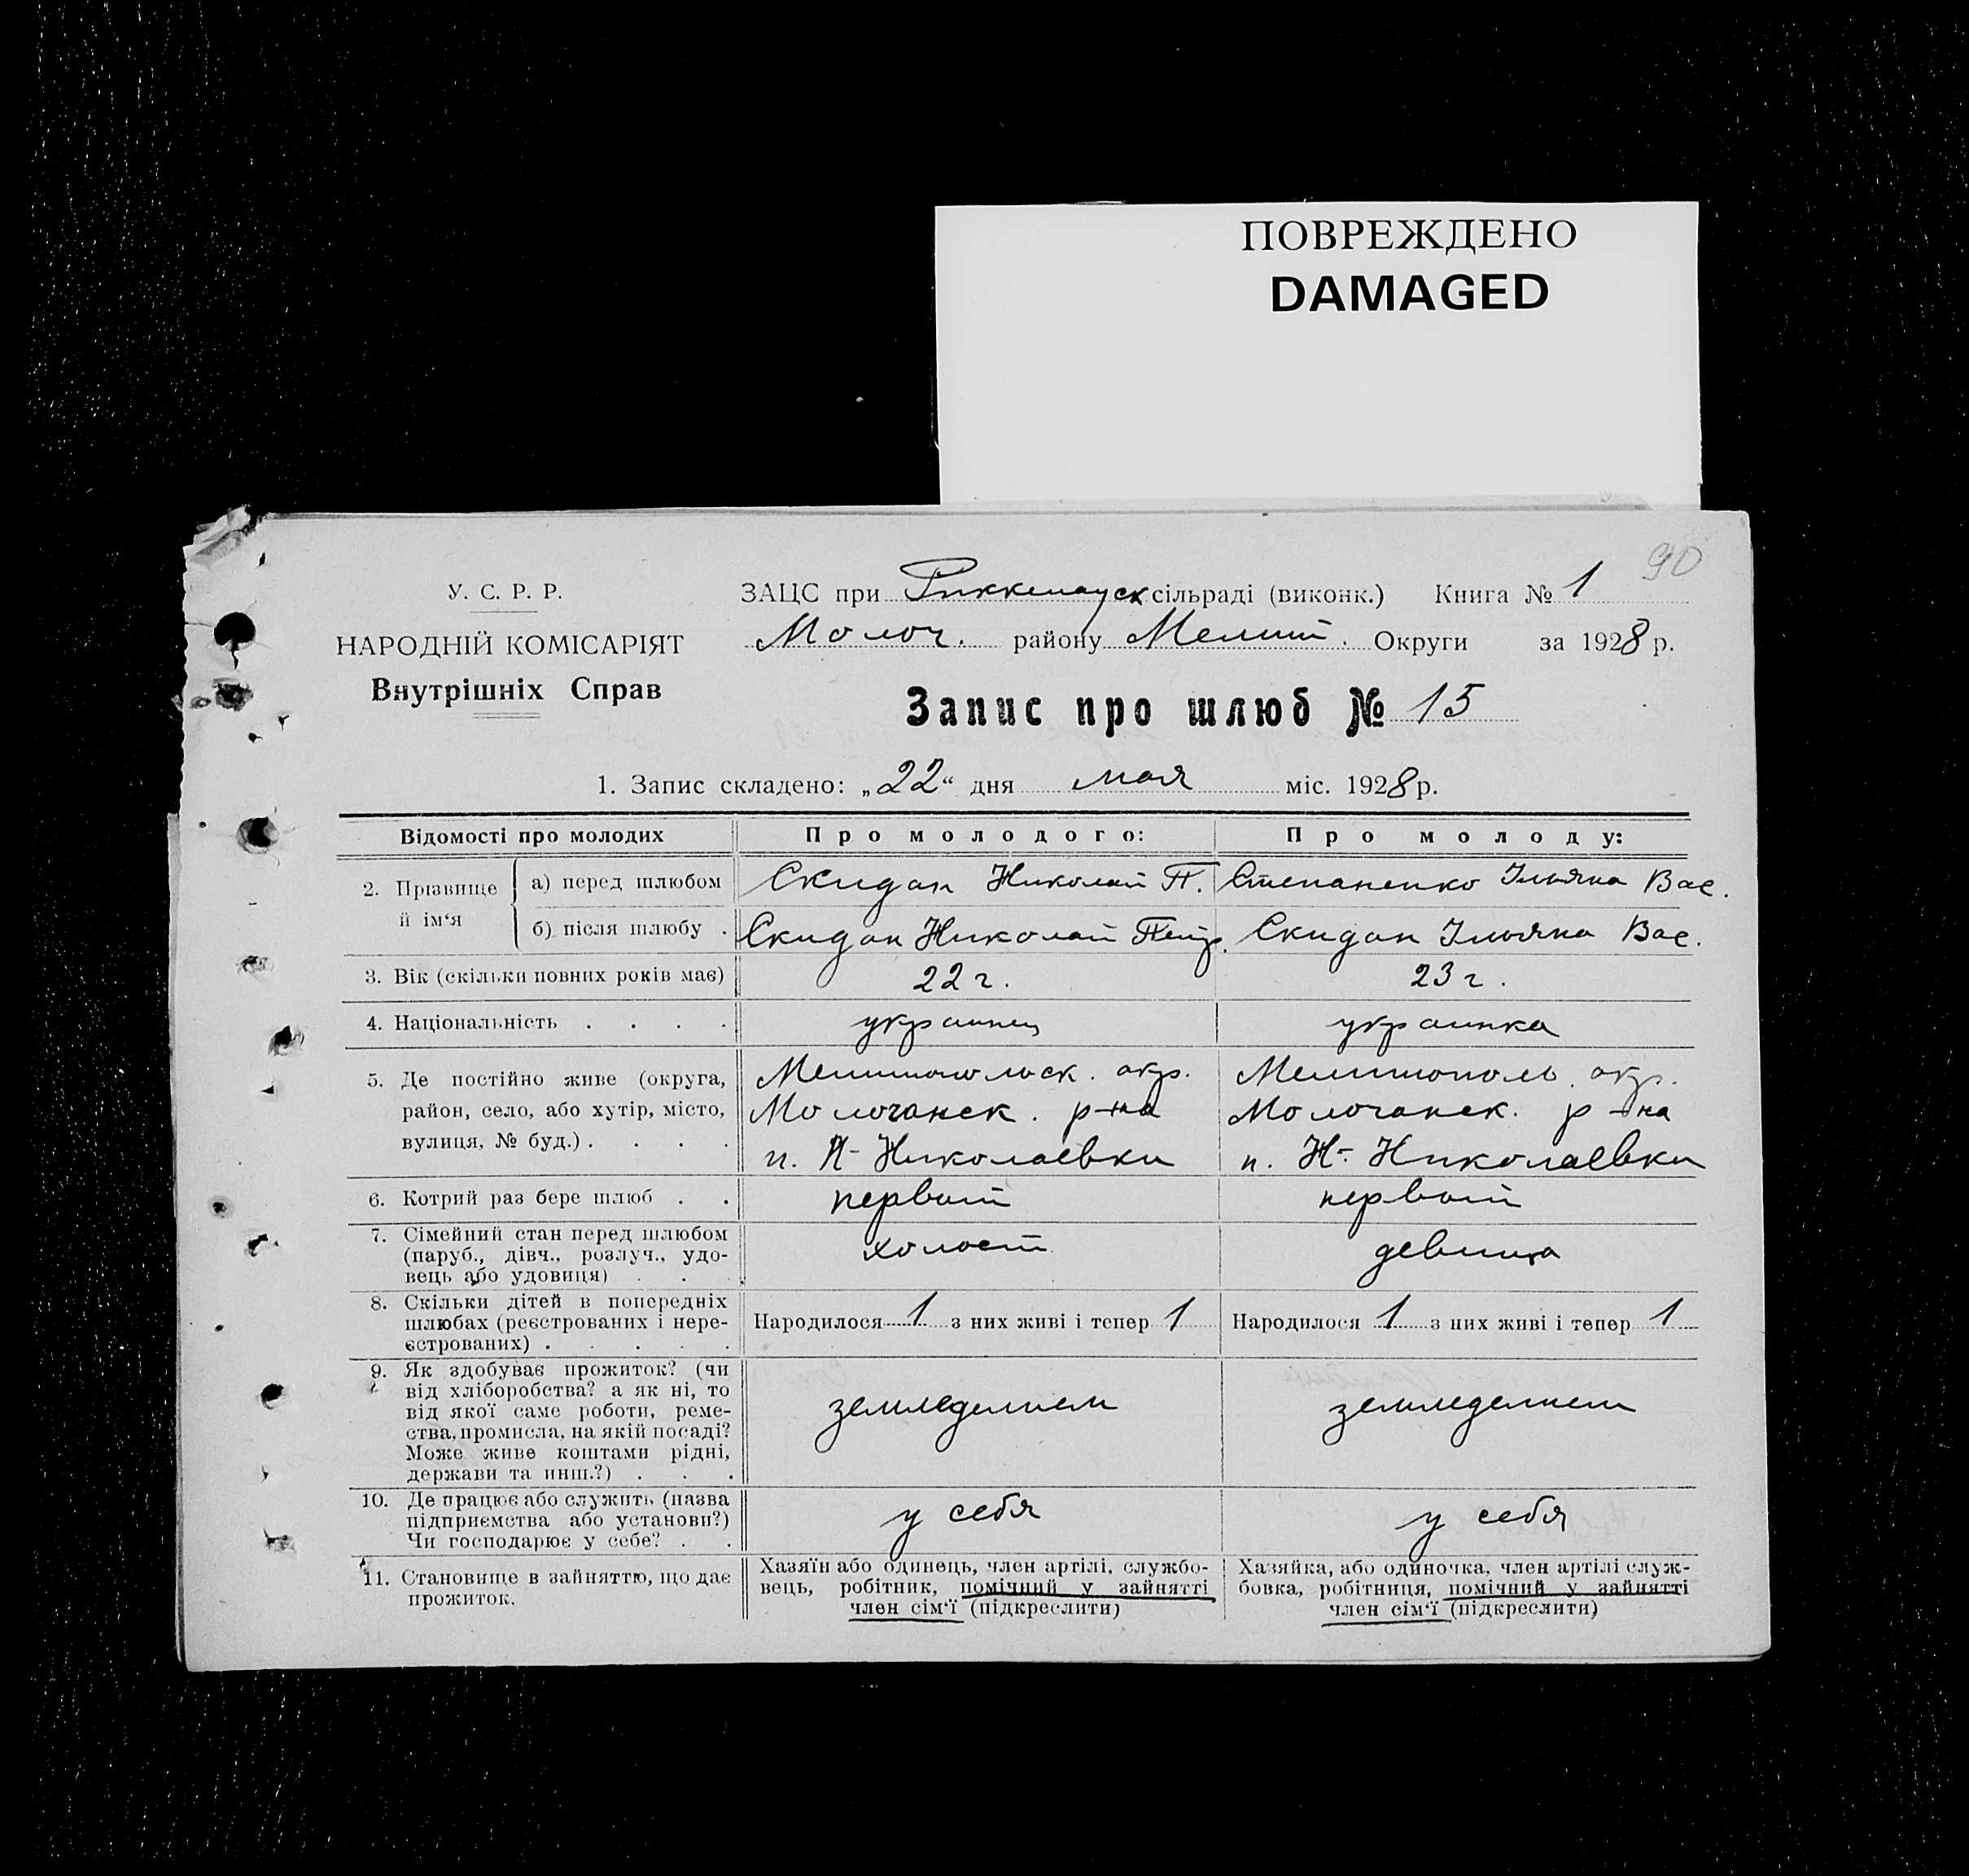 ПОВРЕЖДЕНО
DAMAGED
90
У. С. Р. Р.
НАРОДНІЙ КОМІСАРІЯТ
Внутрішніх Справ
ЗАЦС при Риккенауск сільраді (виконк.) Книга № 1
Молоч. району Мелит. Округи за 1928 р.
Запис про шлюб № 15
1. Запис складено: „22“ дня мая міс. 1928 р.
Відомості про молодих Про молодого: Про молоду:
2. Прізвище й ім‘я
а) перед шлюбом Скидан Николай П. Степаненко Ульяна Вас.
б) після шлюбу . Скидан Николай Петр. Скидан Ульяна Вас.
3. Вік (скільки повних років має) 22 г. 23 г.
4. Національність . . . . украинец украинка
5. Де постійно живе (округа,
район, село, або хутір, місто,
вулиця, № буд.) . . . .
Мелитопольск. окр.
Молочанск. р-на
п. Н-Николаевки
Мелитополь. окр.
Молочанск. р-на
п. Н-Николаевки
6. Котрий раз бере шлюб . . первый первый
7. Сімейний стан перед шлюбом
(паруб., дівч., розлуч., удо-
вець або удовиця) . . .
холост девица
8. Скільки дітей в попередніх
шлюбах (реєстрованих і нере-
єстрованих) . . . . .
Народилося 1 з них живі і тепер 1 Народилося 1 з них живі і тепер 1
9. Як здобуває прожиток? (чи
від хліборобства? а як ні, то
від якої саме роботи, реме-
ства, промисла, на якій посаді?
Може живе коштами рідні,
держави та инш.?) . . .
земледелием земледелием
10. Де працює або служить (назва
підприємства або установи?)
Чи господарює у себе? . .
у себя у себя
11. Становище в зайняттю, що дає
прожиток.
Хазяїн або одинець, член артілі, службо-
вець, робітник, помічний у зайнятті
член сім‘ї (підкреслити)
Хазяйка, або одиночка, член артілі служ-
бовка, робітниця, помічний у зайнятті
член сім‘ї (підкреслити)